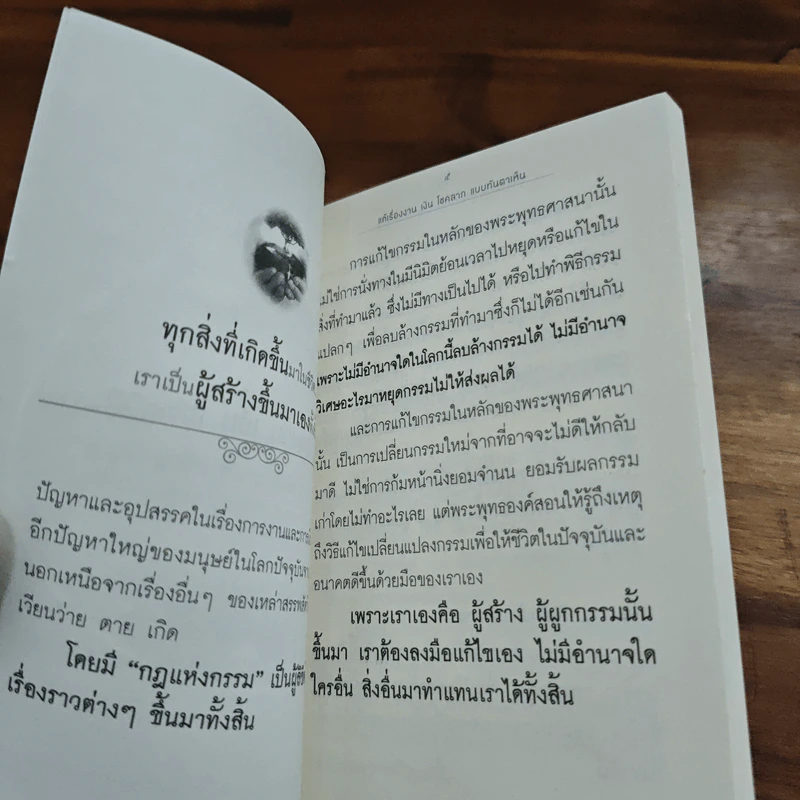 ทุกสิ่งที่เกิดขึ้นมาใน
เราเป็นผู้สร้างขึ้นมาเอง
ปัญหาและอุปสรรคในเรื่องการงานและการ
อีกปัญหาใหญ่ของมนุษย์ในโลกปัจจุบัน
นอกเหนือจากเรื่องอื่นๆ ของเหล่าสรรพสัตว์
เวียนว่าย ตาย เกิด
โดยมี “กฎแห่งกรรม” เป็นผู้
เรื่องราวต่างๆ ขึ้นมาทั้งสิ้น
๕
แก้เรื่องงาน เงิน โชคลาภ แบบทันตาเห็น
การแก้ไขกรรมในหลักของพระพุทธศาสนานั้น
ไม่ใช่การนั่งทางในมีนิมิตย้อนเวลาไปหยุดหรือแก้ไขใน
สิ่งที่ทำมาแล้ว ซึ่งไม่มีทางเป็นไปได้ หรือไปทำพิธีกรรม
แปลกๆ เพื่อลบล้างกรรมที่ทำมาซึ่งก็ไม่ได้อีกเช่นกัน
เพราะไม่มีอำนาจใดในโลกนี้ลบล้างกรรมได้ ไม่มีอำนาจ
วิเศษอะไรมาหยุดกรรมไม่ให้ส่งผลได้
และการแก้ไขกรรมในหลักของพระพุทธศาสนา
นั้น เป็นการเปลี่ยนกรรมใหม่จากที่อาจจะไม่ดีให้กลับ
มาดี ไม่ใช่การก้มหน้านิ่งยอมจำนน ยอมรับผลกรรม
เก่าโดยไม่ทำอะไรเลย แต่พระพุทธองค์สอนให้รู้ถึงเหตุ
ถึงวิธีแก้ไขเปลี่ยนแปลงกรรมเพื่อให้ชีวิตในปัจจุบันและ
อนาคตดีขึ้นด้วยมือของเราเอง
เพราะเราเองคือ ผู้สร้าง ผู้ผูกกรรมนั้น
ขึ้นมา เราต้องลงมือแก้ไขเอง ไม่มีอำนาจใด
ใครอื่น สิ่งอื่นมาทำแทนเราได้ทั้งสิ้น